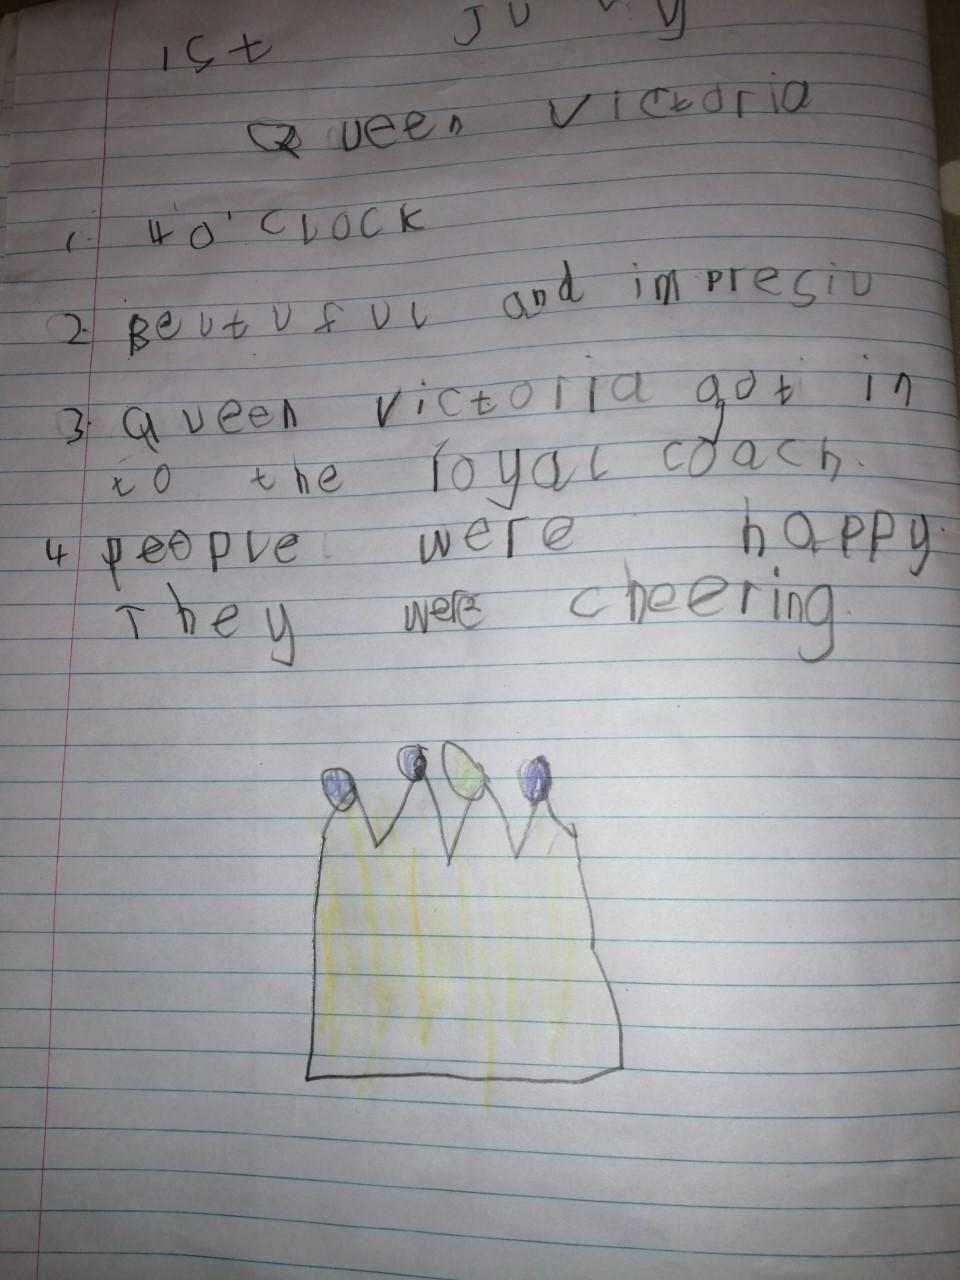 1st
Queen Victoria
1. 4 0' CLOCK
2. Beutuful and impresiv
3. Queen Victoria got in
to the royal coach.
4 people were happy.
They were cheering.